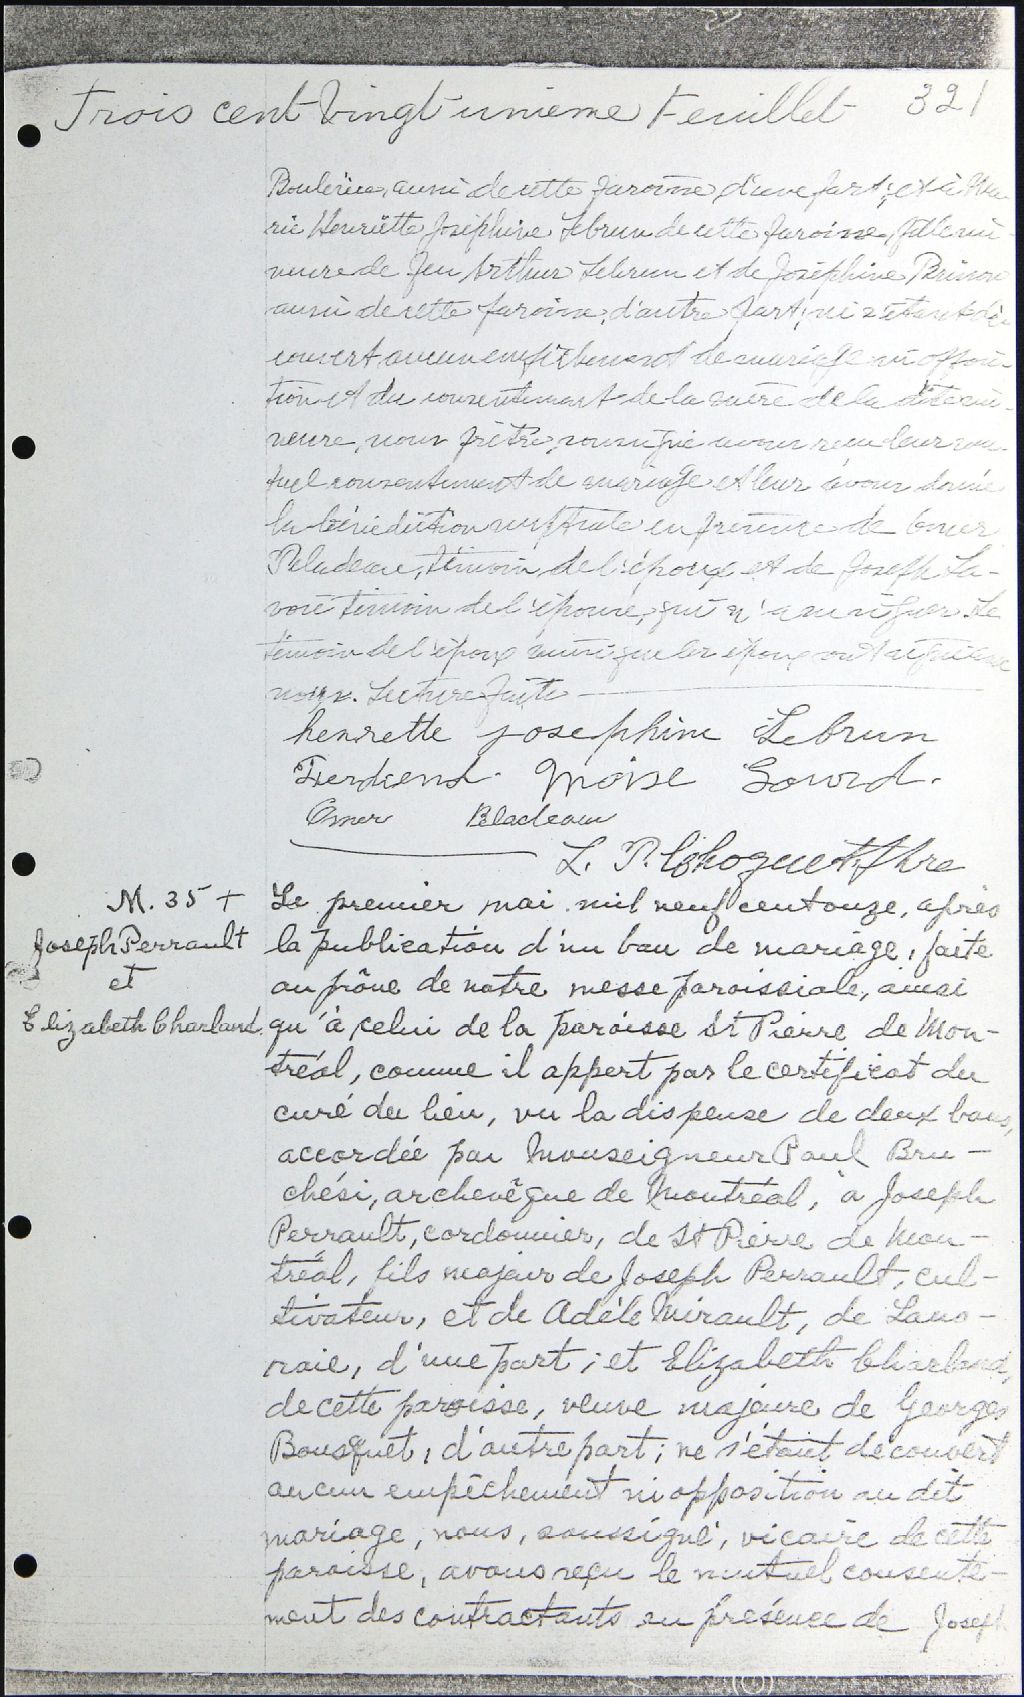 Trois cent vingt unieme Feuillet 321
aussi de cette paroisse d'une part; et à Ma-
rie Henriette Joséphine Lebrun de cette paroisse, fille mi-
neure de feu Arthur Lebrun et de Joséphine
aussi de cette paroisse, d'autre part; ni s'étant dé-
couvert aucun empêchement de mariage ni opposi-
tion et du consentement de la mère de la dite mi-
neure, nous prêtre soussigné avons reçu leur mu-
tuel consentement de mariage et leur avons donné
la bénédiction nuptiale en présence de Omer
Peladeau, témoin de l'époux et de Joseph La-
voie témoin de l'épouse, qui n'a su signer. Le
témoin de l'époux ainsi que les époux ont signé avec
nous. Lecture faite
henrette josephine Lebrun
Ferdiend Moise Gourd.
Omer Pladeau
L. P. Choquette Ptre
M. 35 +
Joseph Perrault
et
Elizabeth Charland.
Le premier mai mil neuf cent onze, après
la publication d'un ban de mariage, faite
au prône de notre messe paroissiale, ainsi
qu'à celui de la paroisse St Pierre de Mon-
tréal, comme il appert par le certificat du
curé du lieu, vu la dispense de deux bans,
accordée par Monseigneur Paul Bru-
chési, archevêque de Montréal, à Joseph
Perrault, cordonnier, de St Pierre de Mon-
tréal, fils majeur de Joseph Perrault, cul-
tivateur, et de Adèle Mirault, de Lano-
raie, d'une part; et Elizabeth Charland,
de cette paroisse, veuve majeure de Georges
Bousquet, d'autre part; ne s'étant découvert
aucun empêchement ni opposition au dit
mariage, nous, soussigné, vicaire de cette
paroisse, avons reçu le mutuel consente-
ment des contractants en présence de Joseph